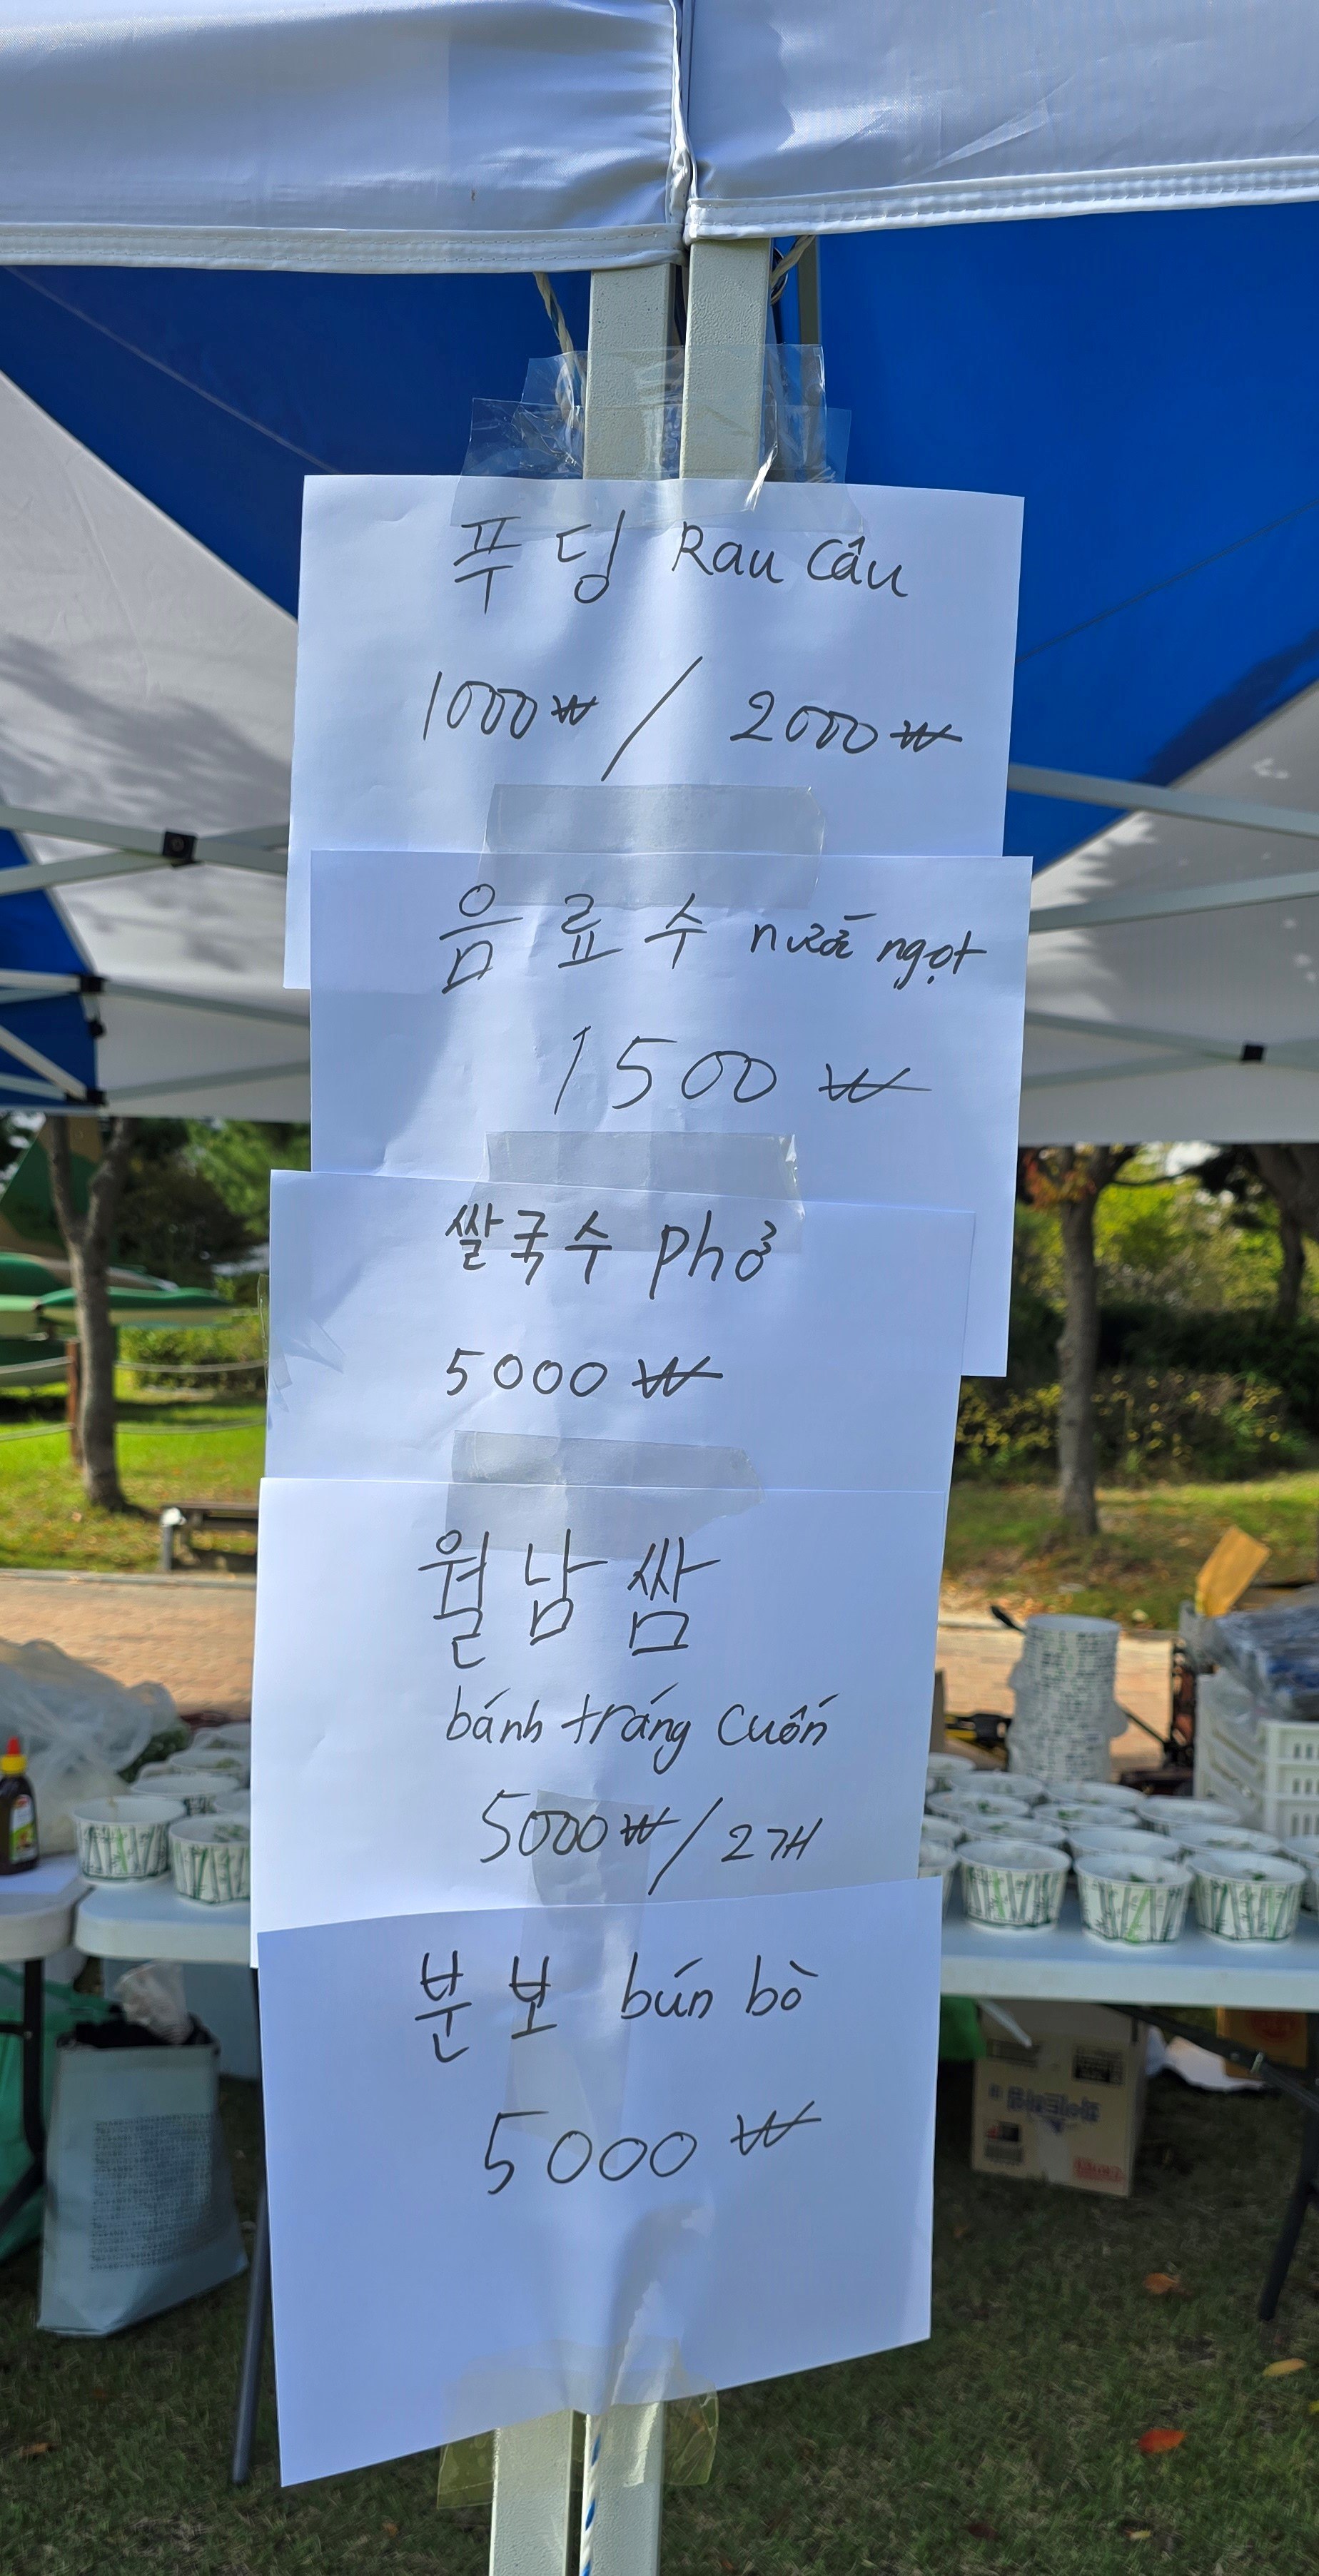 푸딩 Rau Câu
1000₩ / 2000₩
음료수 nước ngọt
1500 ₩
쌀국수 phở
5000 ₩
월남쌈
bánh tráng cuốn
5000₩/2개
분보 bún bò
5000 ₩